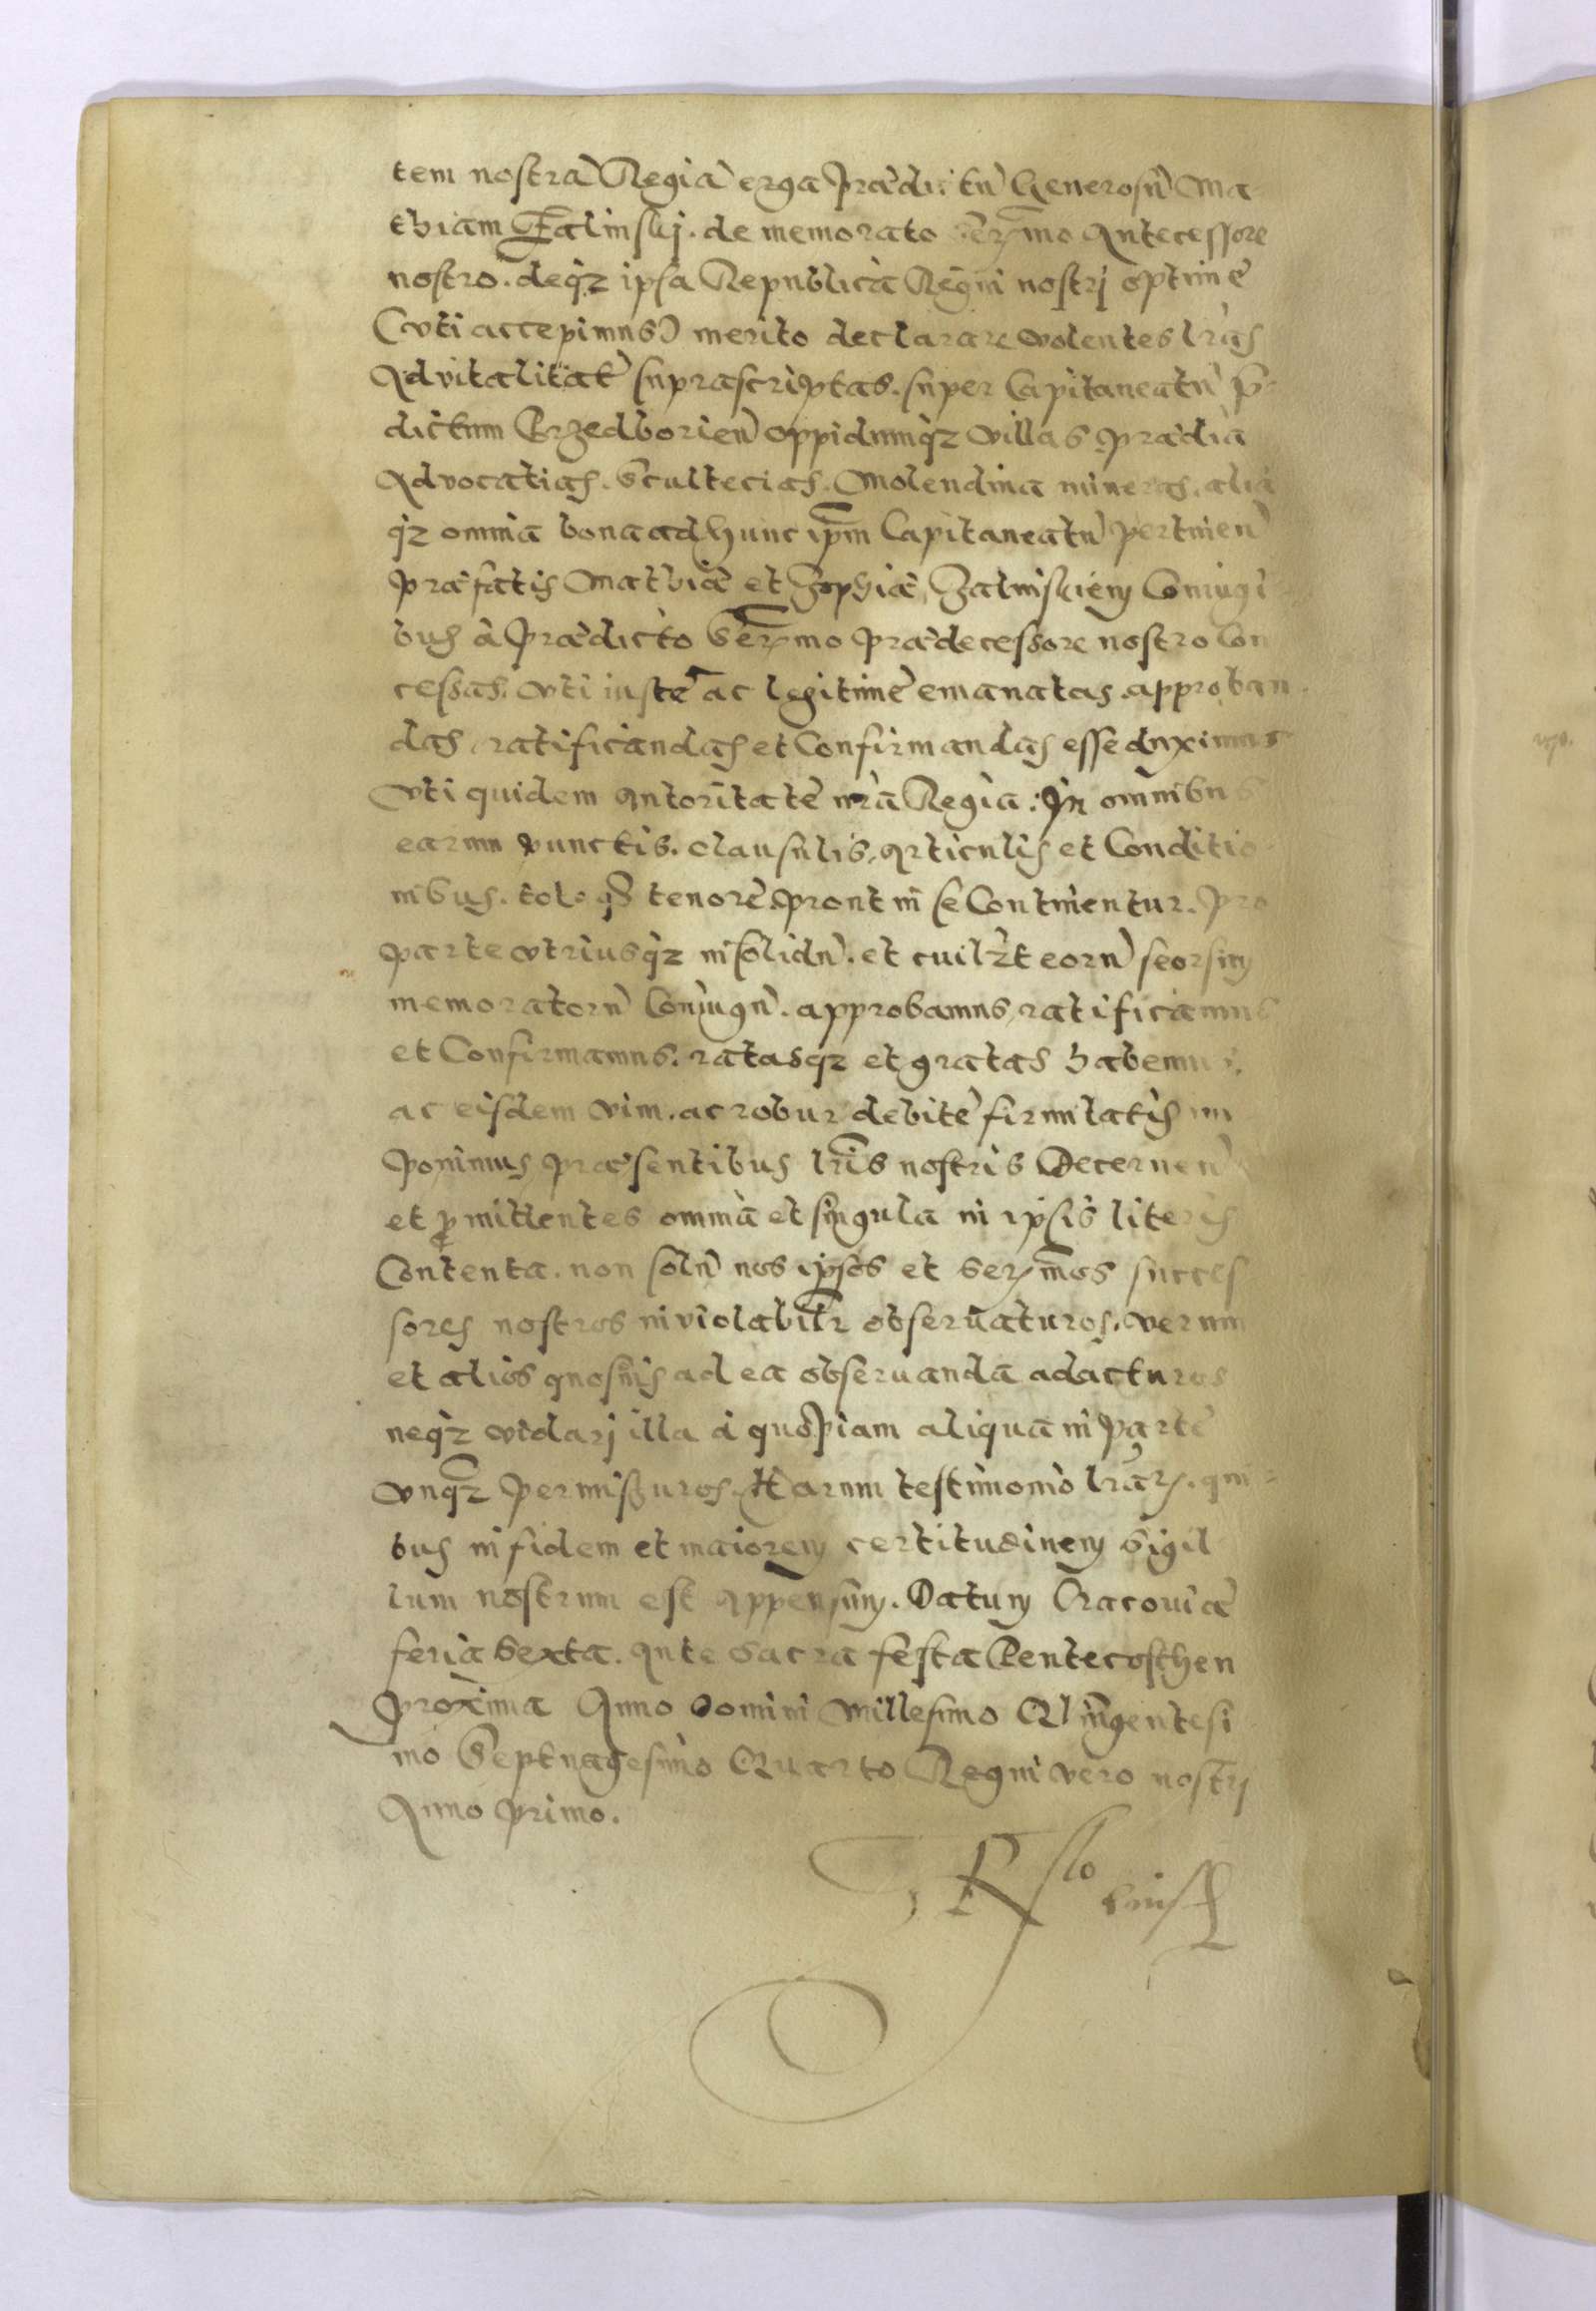 tem nostrā Regiā erga prædictū Generosū Ma
thiam Zalinskj. de memorato Serꝫmo Antecessore
nostro. deqꝫ ipsa Republicà Regni nostrj optimè
(vti accepimus) merito declarare volentes lr̄as
Advitalitatꝭ suprascriptas. super Capitaneatū p̄
dictum Brzedborień oppidumqꝫ villas prædia
Advocatias. Scultecias. Molendina mineras. alia
qꝫ omnia bona ad hunc ip̄m Capitaneatū pertineń
præfatis Mathiæ et Zophiæ, Zalinsciem Coniugi
bus à prædicto Serꝫmo prædecessore nostro Con
cessas. vti iustè ac legitimè emanatas. approban
das, ratificandas et Confirmandas esse duximus
Vti quidem autoritate nr̄a Regia: In omnibus
earum punctis. clausulis, articulis et Conditio
nibus. totoqꝫ tenore. prout in se Continentur. Pro
parte vtriusqꝫ insolidū. et cuilꝫt eorū seorsim
memoratorū Coniugū. approbamus, ratificamus
et Confirmamus. ratasqꝫ et gratas habemus,
ac eisdem vim. ac robur debitè firmitatis im
ponimus præsentibus lr̄is nostris Decerneń
et ꝓmittentes omnia et singula in ipsis literis
Contenta. non solū nos ipsos et Serꝫmos succes
sores nostros inviolabilr̄ observaturos. verum
et alios quosvis ad ea observanda adacturos
neqꝫ violarj illa à quopiam aliquā in parte
vnqꝫ permissuros. Harum testimonio lr̄arꝫ. qui
bus in fidem et maiorem certitudinem Sigil
lum nostrum est appensum. Datum Cracoviæ
feria Sexta. ante Sacra festa Pentecosthen
proxima Anno Domini Millesimo Quingentesi
mo Septuagesimo Quarto Regni vero nostrj
Anno primo.